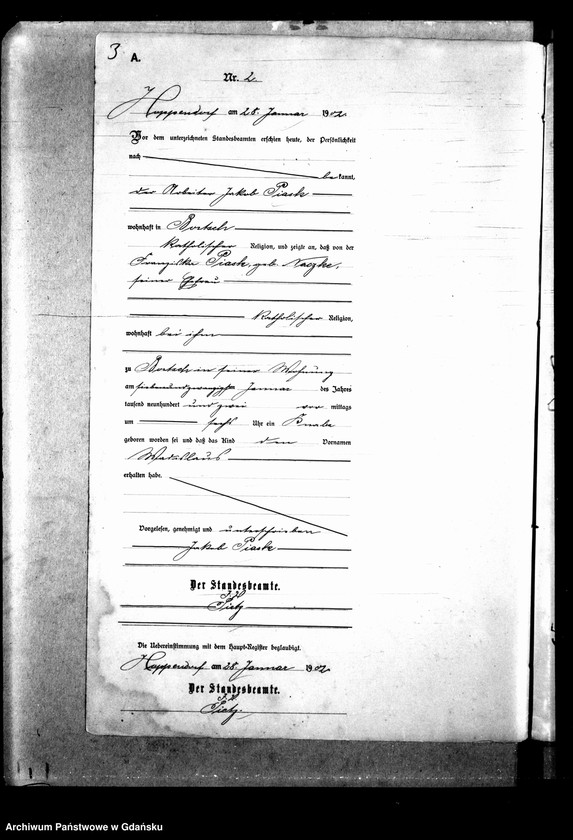 3 A.
Nr. 2
Hoppendorf am 28. Januar 1902
Vor dem unterzeichneten Standesbeamten erschien heute, der Persönlichkeit
nach
bekannt,
der Arbeiter Jakob Piask
wohnhaft in Bortsch
katholischer Religion, und zeigte an, daß von der
Franziska Piask, geb. Naczke,
seiner Ehefrau
katholischer Religion,
wohnhaft bei ihm
zu Bortsch in seiner Wohnung
am siebenundzwanzigsten Januar des Jahres
tausend neunhundert und zwei vor mittags
um sechs Uhr ein Knabe
geboren worden sei und daß das Kind den Vornamen
erhalten habe.
Vorgelesen, genehmigt und unterschrieben
Jakob Piask
Der Standesbeamte.
Die Uebereinstimmung mit dem Haupt-Register beglaubigt.
Hoppendorf am 28. Januar 1902
Der Standesbeamte.
Archiwum Państwowe w Gdańsku